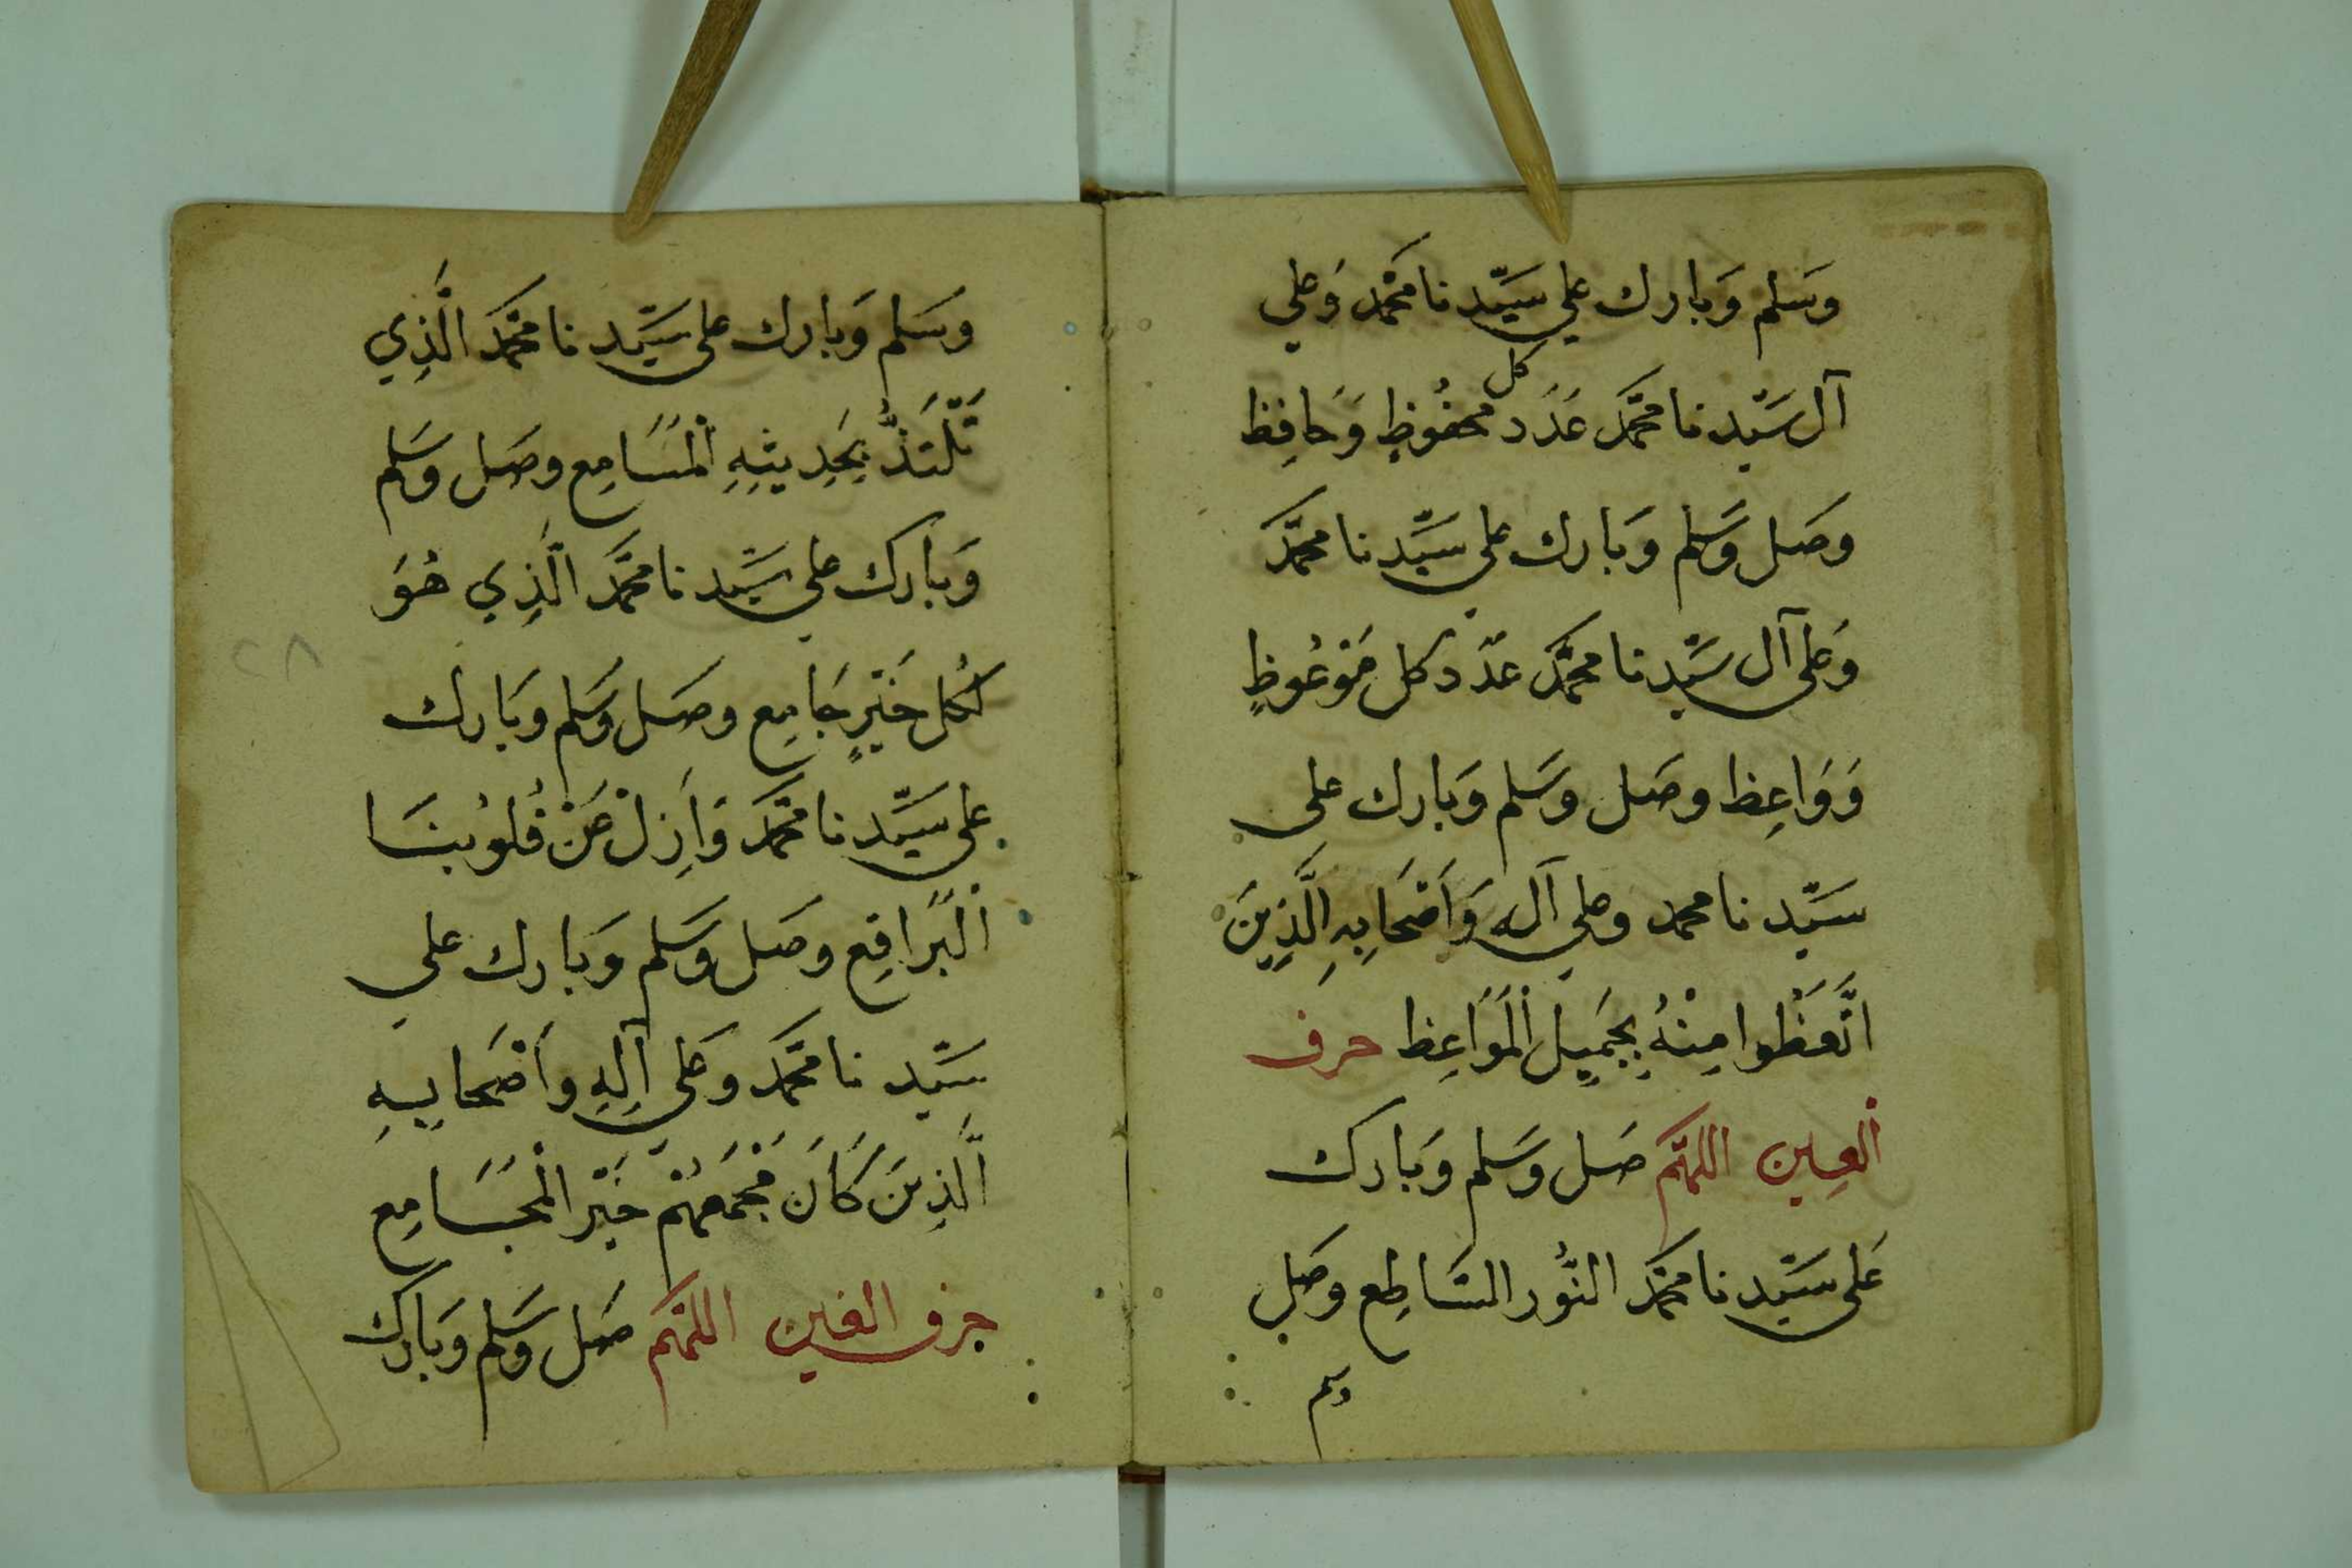 وَسَلم وَبارك علي سَيّدنا محَمد وَعلي
آل سَيّدنا محمَّد عَدَد كل محفُوظٍ وَحَافِظ
وصَل وَسَلم وَبَارك علي سَيِّدنا محمَّد
وَعَلى آل سَيِّدنا محمَّد عدَد كل مَوعُوظٍ
وَوَاعِظ وصَل وسَلم وَبَارك على
سَيّدنا محمد وعلي آله وَأَصْحَابِهِ الَّذِينَ
اتَّعَظُوا مِنْهُ بِجَمِيلِ الْمَوَاعِظ حرف
العين اللهم صَل وَسَلم وَبَارك
عَلى سَيّدنا محَمَّد النُّور السَّاطِع وصَل
وسلم
وَسَلم وَبارك على سَيِّدنا محَمَّد الَّذِي
تَلْتَذُّ بِحَدِيثِهِ الْمَسَامِع وصَل وَسَلم
وَبَارك علي سَيِّدنا محَمَّد الَّذِي هُوَ
لِكُل خَيْرٍ جَامِع وصَل وَسَلم وَبَارك
على سَيِّدنا محَمَّد وَأَزِلْ عَنْ قُلُوبنَا
الْبَرَاقِع وصَل وَسَلم وَبَارك علي
سَيّدنا محَمَّد وَعَلى آلِهِ وأَصْحَابِهِ
الَّذِينَ كَانَ مَجْمَعهُمْ خَيْر الْمَجَامِع
حرف الغين اللهم صَل وَسَلم وَبَارك
٢٨